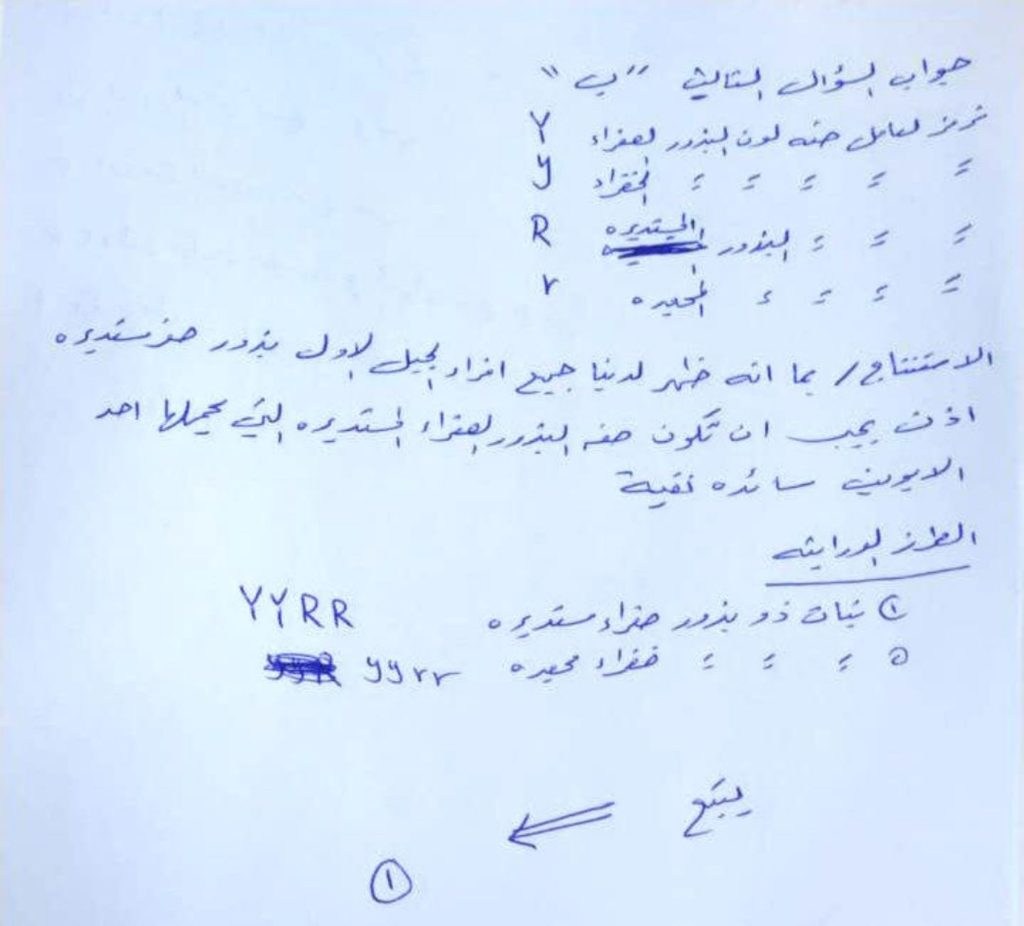 جواب السؤال الثالث "ب"
نرمز لعامل صفه لون البذور الصفراء Y
= = = = = الخضراء y
= = = البذور المستديره R
= = = = المجعده r
الاستنتاج / بما انه ظهر لدينا جميع افراد الجيل الاول بذور صفر مستديره
اذن يجب ان تكون صفه البذور الصفراء المستديره التي يحملها احد
الابوين سائده نقية
الطرز الوراثيه
① نبات ذو بذور صفراء مستديره YYRR
= = = خضراء مجعده yyrr
يتبع
①